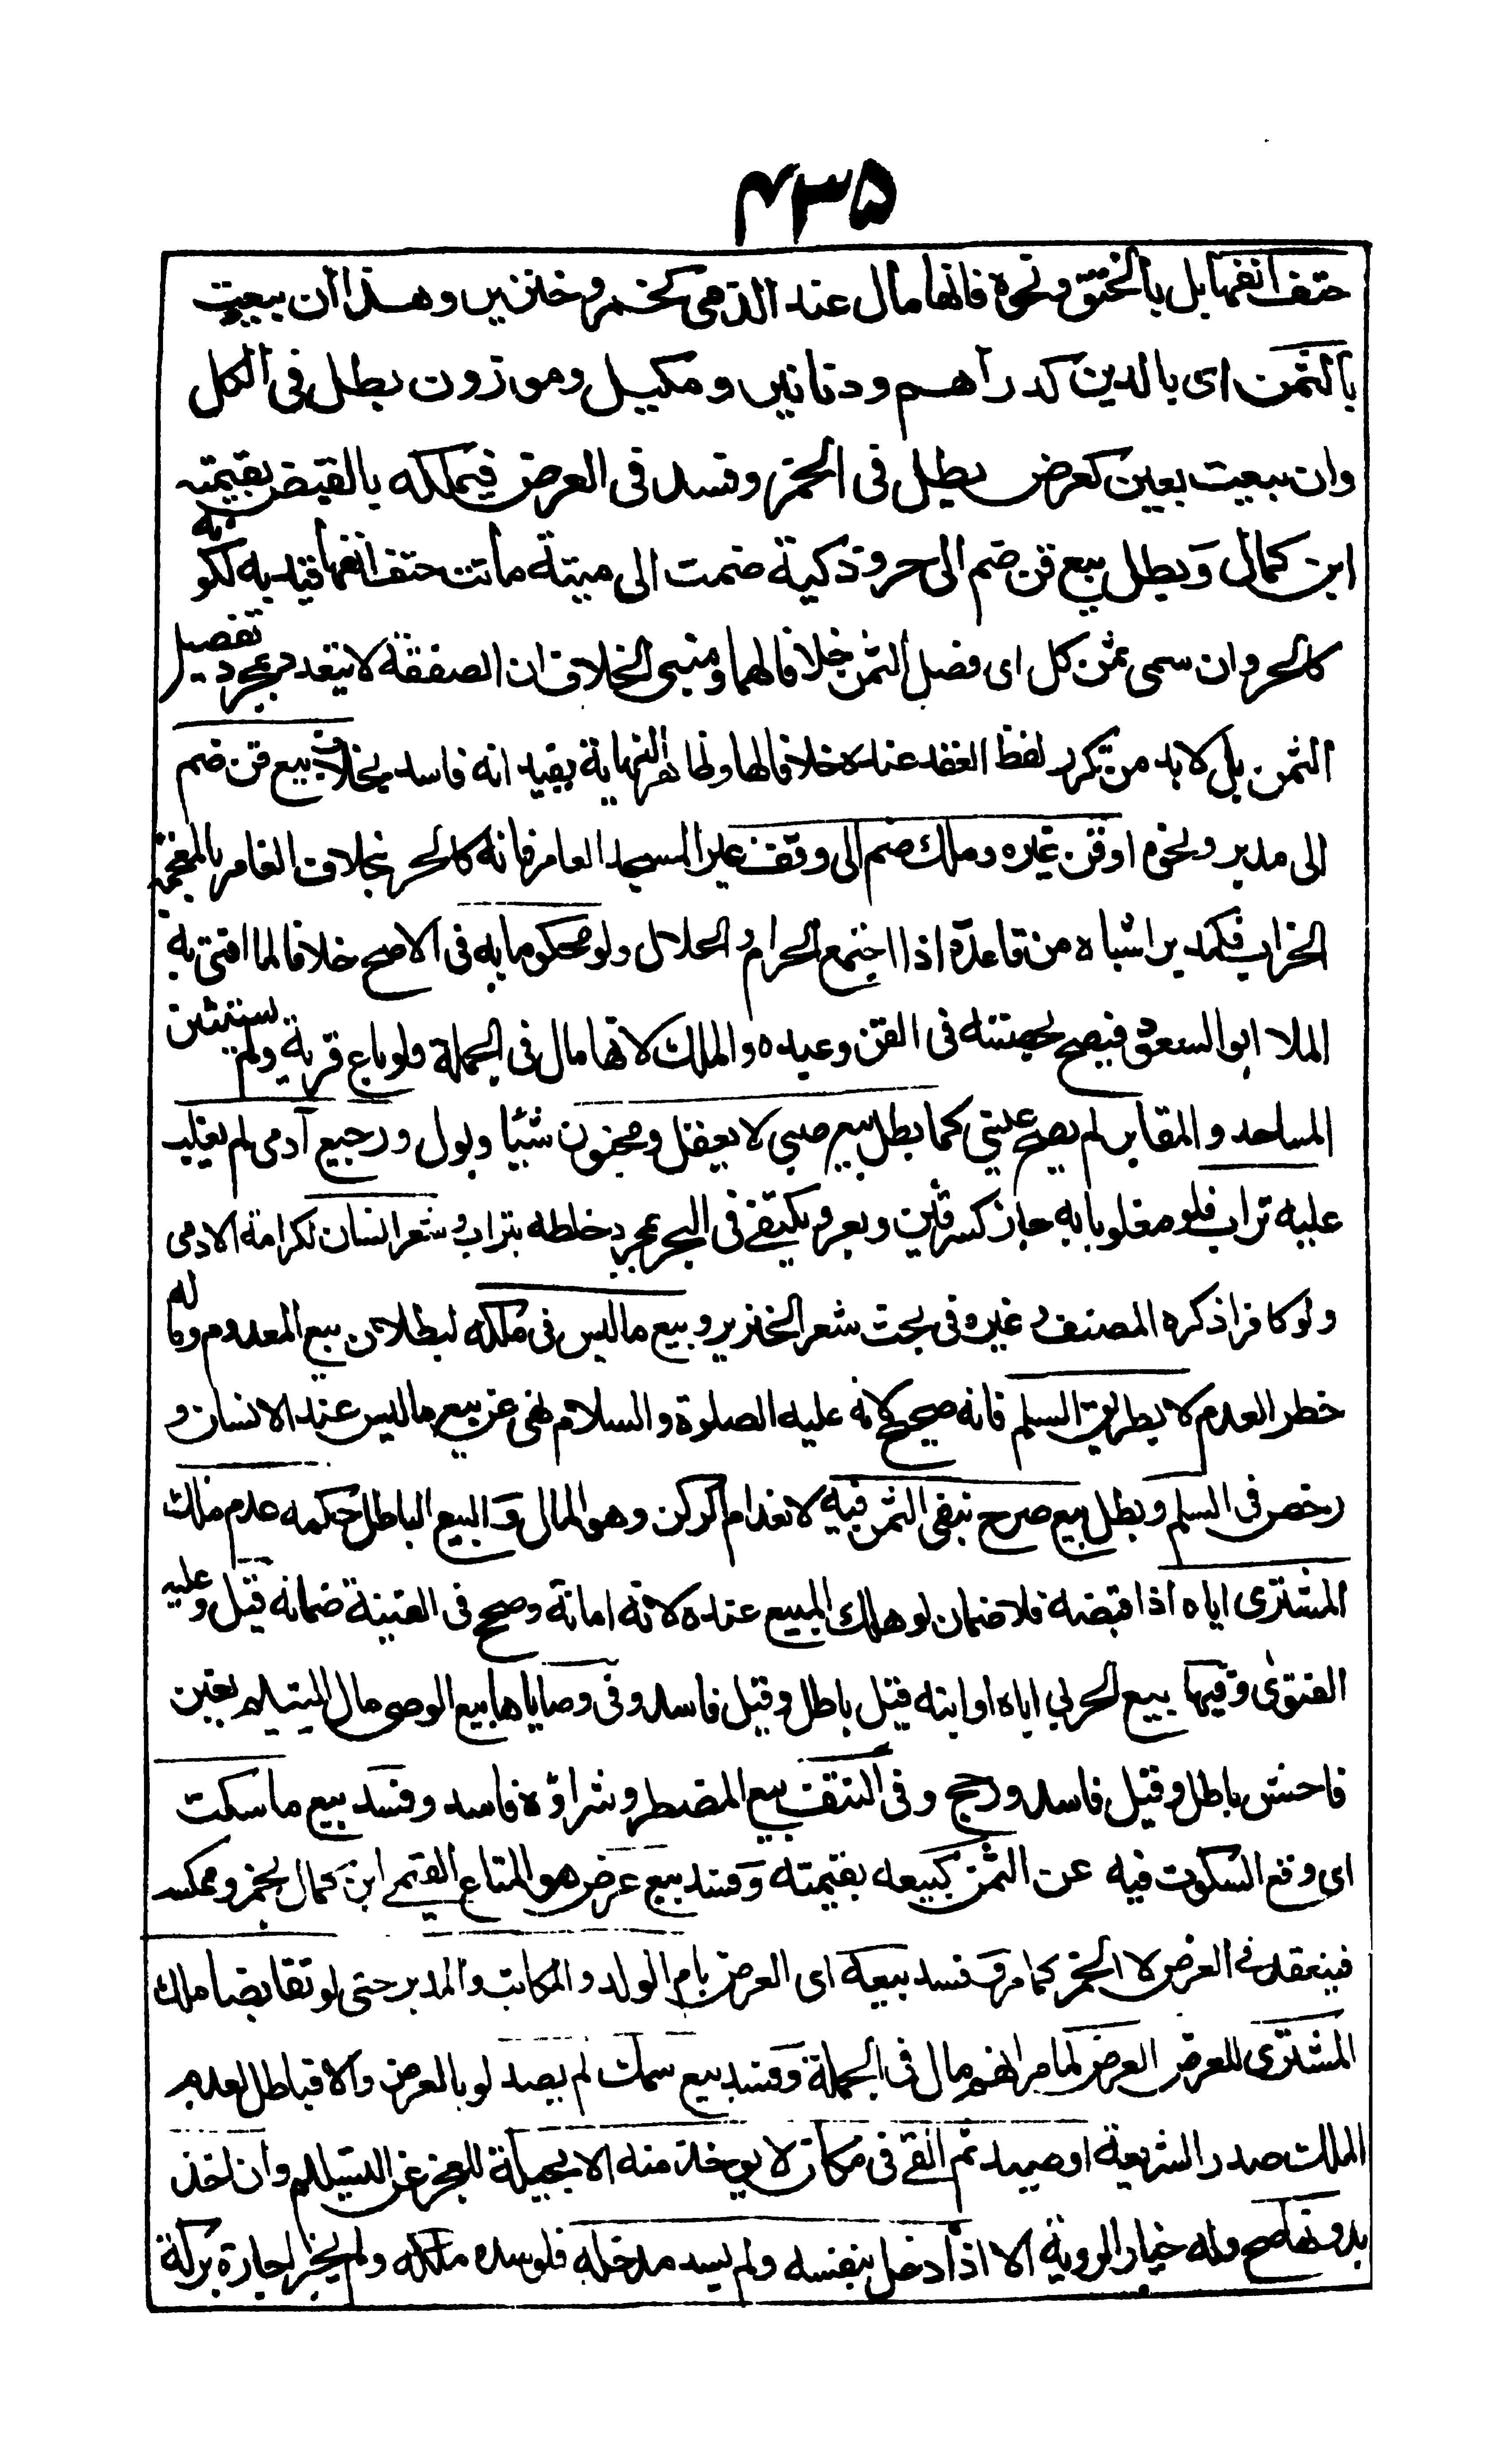 ۴۳۵
حتف انفها بل بالخنق ونحوه فانها مال عند الذمى كخمر وخنزير وهذا ان بيعت
بالثمن اى بالدين كدراهم ودنانير ومكيل وموزون بطل فى الكل
وان بيعت بعين كعرض بطل فى الخمر وفسد فى العرض فيملكه بالقبض بقيمته
ابن كمال وبطل بيع قن ضم الى حر وذكية ضمت الى ميتة ماتت حتف انفها قيد به لتكونه
كالحر وان سمى ثمن كل اى فصل الثمن خلافا لهما ومبنى الخلاف ان الصفقة لا يتعدد بمجرد تفصيل
الثمن بل لا بد من تكرر لفظ العقد عنده خلافا لهما وظاهر النهاية يفيد انه فاسد بخلاف بيع قن ضم
الى مدبر ونحوه او قن غيره وملك ضم الى وقف غير المسجد العامر فانه كالحر بخلاف الغامر بالمعجمة
الخراب فكمدبر اشباه من قاعدة اذا اجتمع الحرام والحلال ولو محكوما به فى الاصح خلافا لما افتى به
الملا ابو السعود فيصح بحصته فى القن وعبده والملك لانها مال فى الجملة ولو باع قرية ولم يستثن
المساجد والمقابر لم يصح عينى كما بطل بيع صبى لا يعقل ومجنون شيئا وبول ورجيع آدمى لم يغلب
عليه تراب فلو مغلوبا به جاز كسرقين وبعر ويكتفى فى البحر بمجرد خلطه بتراب وشعر انسان لكرامة الادمى
ولو كافرا ذكره المصنف وغيره فى بحث شعر الخنزير وبيع ما ليس فى ملكه لبطلان بيع المعدوم وما له
خطر العدم لا بطريق السلم فانه صحيح لانه عليه الصلوة والسلام نهى عن بيع ما ليس عند الانسان و
رخص فى السلم وبطل بيع صرح بنفى الثمن فيه لانعدام الركن وهو المال والبيع الباطل حكمه عدم ملك
المشترى اياه اذا قبضه فلا ضمان لو هلك المبيع عنده لانه امانة وصحح فى القنية ضمانه قيل وعليه
الفتوى وفيها بيع الحربى اباه او ابنه قيل باطل وقيل فاسد وفى وصاياها بيع الوصى مال اليتيم بغبن
فاحش باطل وقيل فاسد ورجح وفى النتف بيع المضطر وشراؤه فاسد وفسد بيع ما سكت
اى وقع السكوت فيه عن الثمن كبيعه بقيمته وفسد بيع عرض هو المتاع القيمى ابن كمال بخمر وعكسه
فينعقد فى العرض لا الخمر كما مر وفسد بيعه اى العرض بام الولد والمكاتب والمدبر حتى لو تقابضا ملك
المشترى للعرض العرض لما مر انهم مال فى الجملة وفسد بيع سمك لم يصد لو بالعرض والا فباطل لعدم
الملك صدر الشريعة او صيد ثم القى فى مكان لا يوخذ منه الا بحيلة للعجز عن التسليم وان اخذ
بدونها صح وله خيار الروية الا اذا دخل بنفسه ولم يسد مدخله فلو سده ملكه ولم يجز اجارة بركة